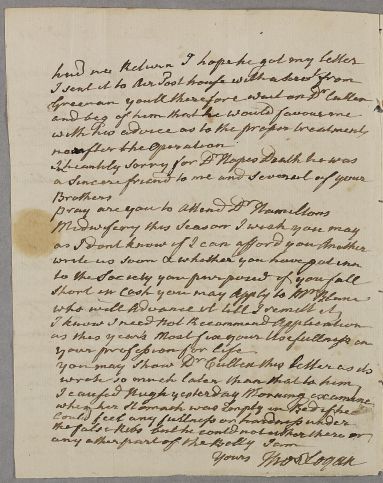 had no Return I hope he got my letter
I sent it to Air Post house with a serv.t from
Greenan you'll therefore wait on Dr Cullen
and beg of him that he would favour me
with his advice as to the proper treatment
now after the operation
I heartily sorry for Dr Hopes Death he was
a Sincere friend to me and Several of your
Brothers
pray are you to attend Dr Hamiltons
Midwifery this Season I wish you may
as I dont know if I can afford you Another
write us soon & whether you have got inn
to the Society you purposed if you fall
short in Cash you may Apply to Mr
who will Advance it till I remitt it
I know I need not Recommend Application
as this years Most fix your Usefullness in
your profession for life
You may Show Dr Cullen this letter as its
wrote so much later than that to him
I caused Hugh yesterday Morning examine
when her Stomach was Empty in Bed if he
Could feel any fullness or hardness under
the false Ribs but he could not neither there or
any other part of the Belly I am
Yours Thos Logan